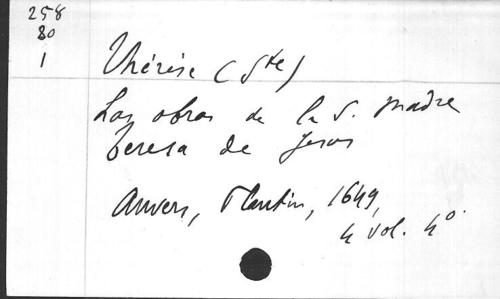 258
80
1
Thérèse (Ste)
Las obras de la S. Madre
Teresa de Jesus
Anvers, Plantin, 1649,
4 vol. 4°.